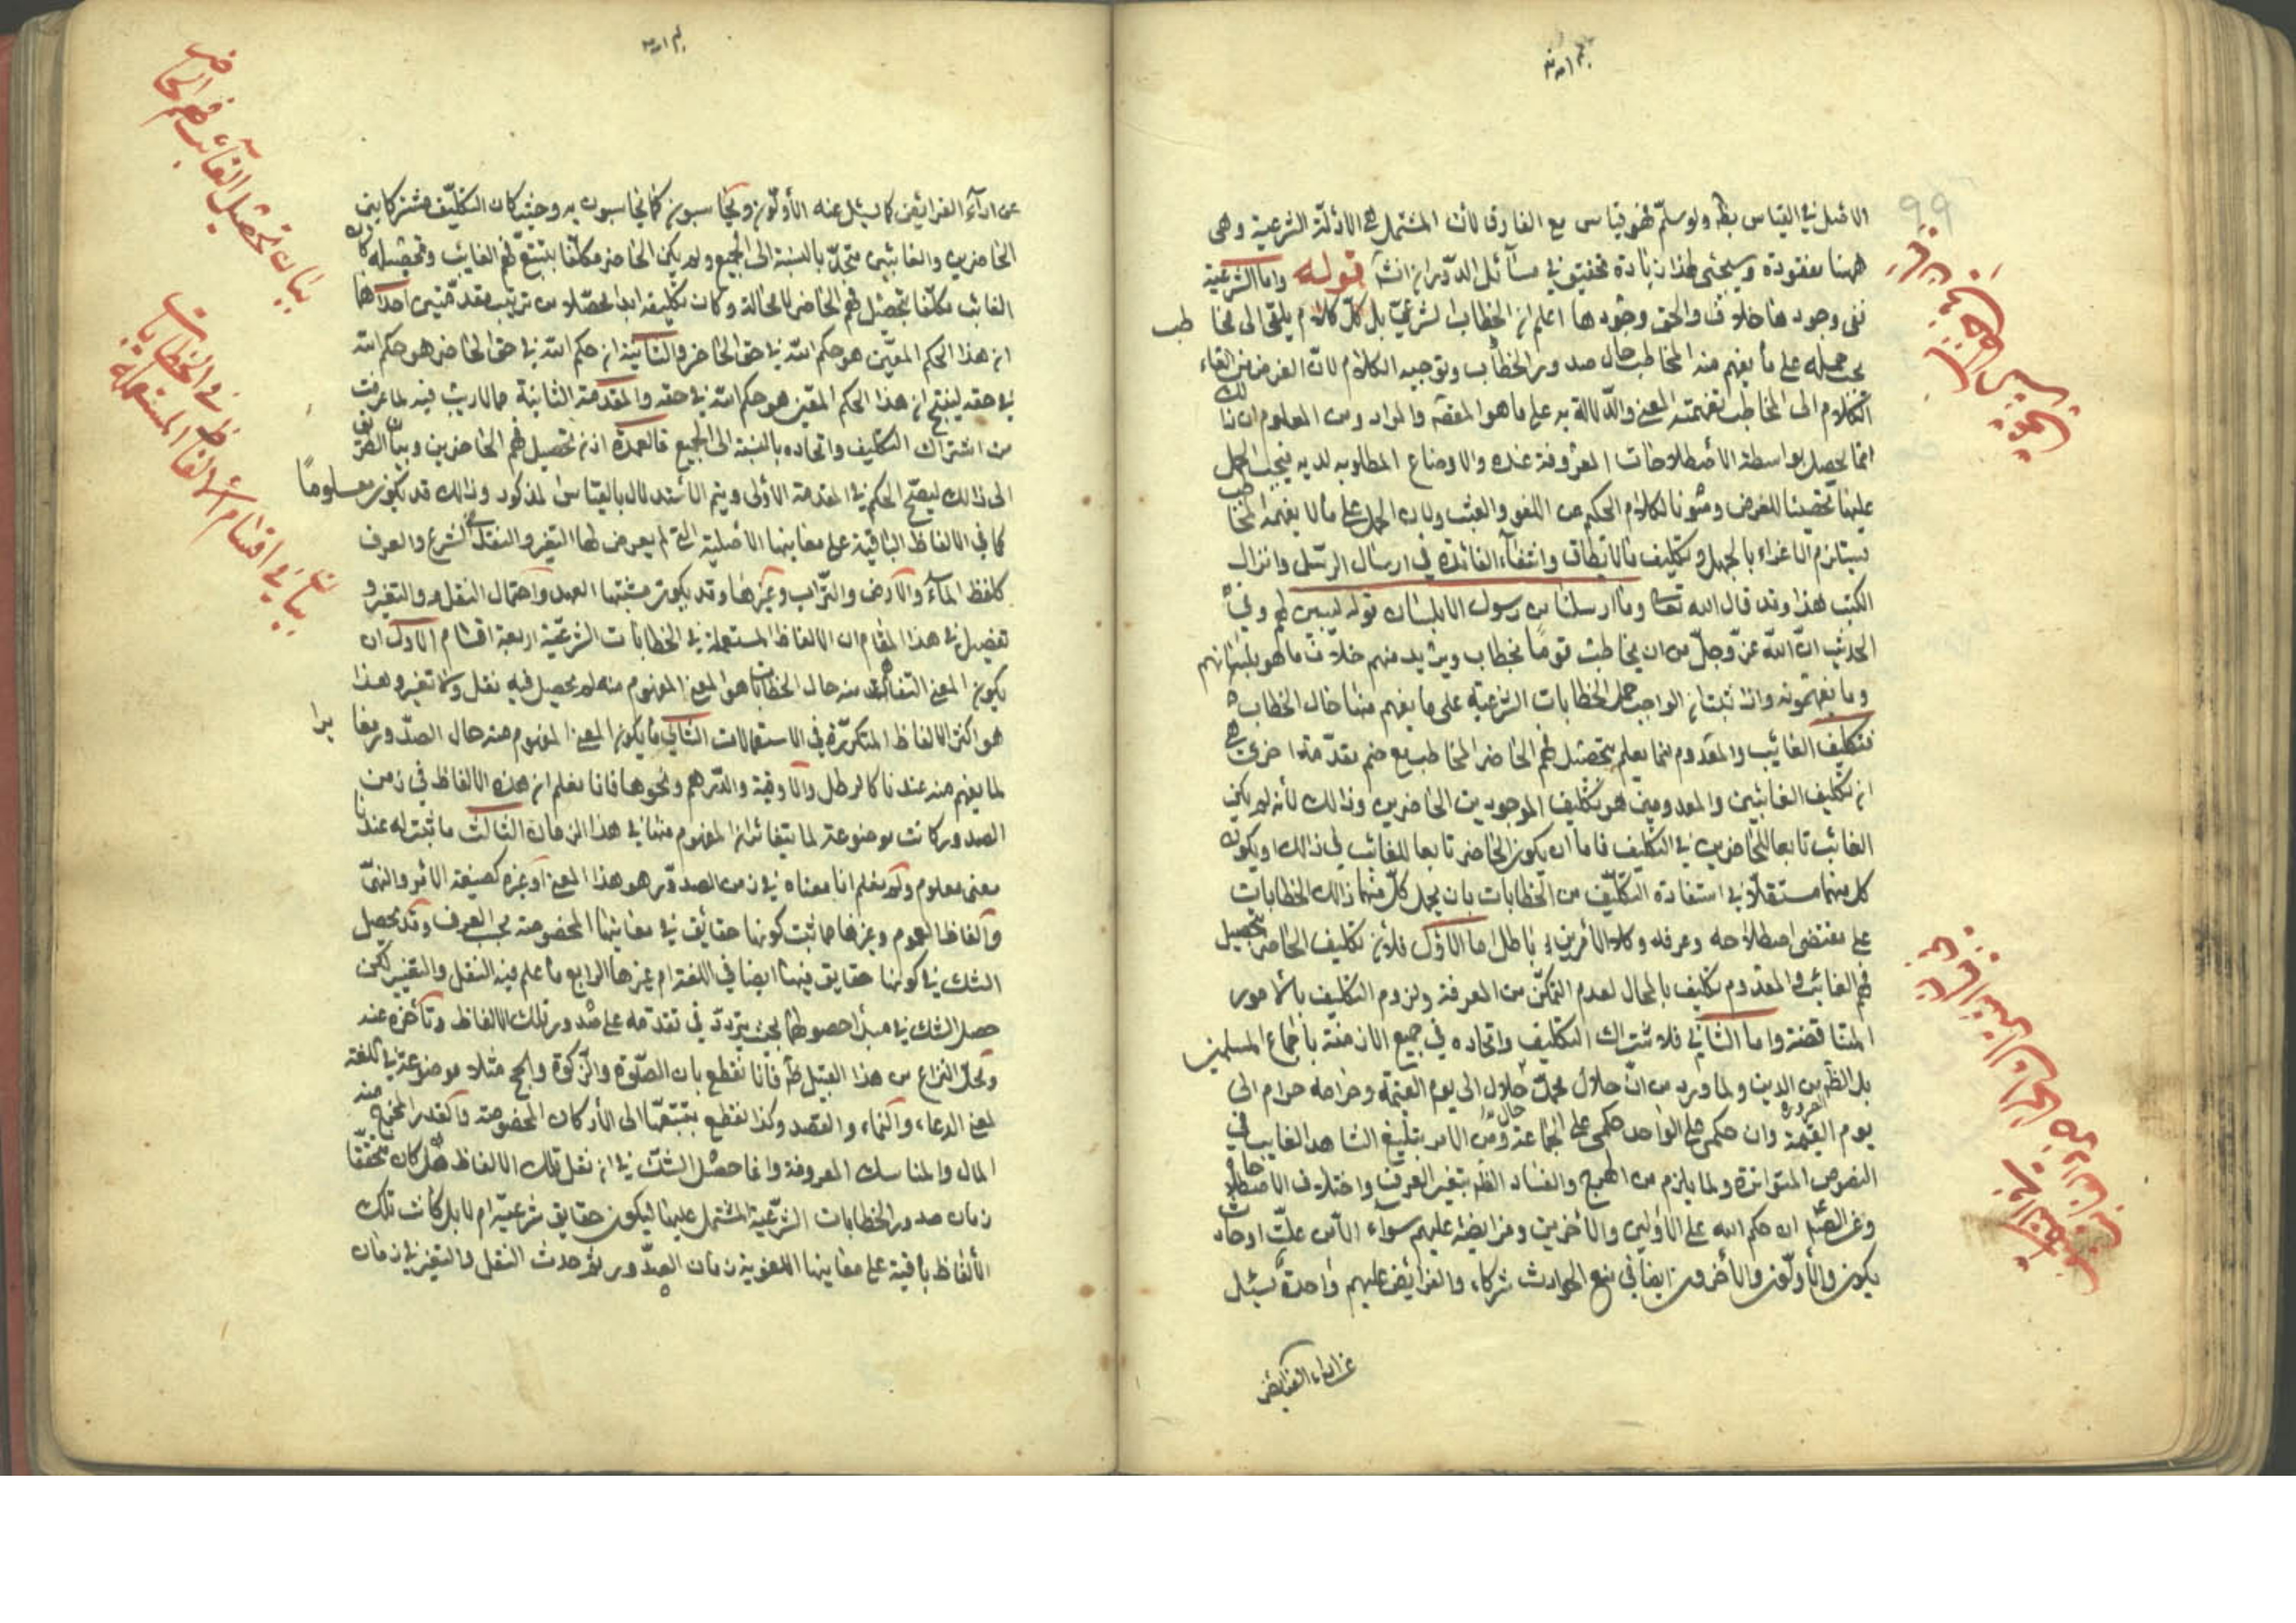 الاصل في القياس بط ولو سلم فهو قياس مع الفارق لأن المشتمل على الادلة الشرعية وهى
ههنا مفقودة وسيجئ لهذا زيادة تحقيق في مسائل الدوران انشآ قوله واما الشرعية
ففى وجودها خلاف والحق وجودها اعلم ان الخطاب الشرعي بل كل كلام يلقى الى مخا طب
يجب حمله على ما يفهم منه المخاطب حال صدور الخطاب وتوجيه الكلام لان الغرض من القاء
الكلام الى المخاطب تفهيمه المعنى والدلالة به على ما هو المقصد والمراد ومن المعلوم ان ذلك
انما يحصل بواسطة الاصطلاحات المعروفة عنده والاوضاع المطلوبه لديه فيجب الحمل
عليها تحصيلا للغرض وصونا لكلام الحكيم عن اللغو والعبث ولان الحمل على ما لا يفهمه المخاطب
يستلزم الاغراء بالجهل وتكليف ما لا يطاق وانتفاء الفائدة في ارسال الرسل وانزال
الكتب هذا وقد قال الله تعالى وما ارسلنا من رسول الا بلسان قومه ليبين لهم وفى
الحديث ان الله عز وجل من ان يخاطب قوما بخطاب ويريد منهم خلاف ما هو بلسانهم
وما يفهمونه واذا ثبت ان الواجب حمل الخطابات الشرعية على ما يفهم منها حال الخطاب
فتكليف الغائب والمعدوم انما يعلم بتحصيل فهم الحاضر المخاطب مع ضم مقدمة اخرى هى
ان تكليف الغائبين والمعدومين هو تكليف الموجودين الحاضرين وذلك لأنه لو لم يكن
الغائب تابعا للحاضرين في التكليف فاما ان يكون الحاضر تابعا للغائب في ذلك او يكون
كل منهما مستقلا في استفادة التكليف من الخطابات بان يحمل كل منهما ذلك الخطابات
على مقتضى اصطلاحه وعرفه وكلا الأمرين باطل اما الاول فلأن تكليف الحاضر بتحصيل
فهم الغائب والمعدوم تكليف بالمحال لعدم التمكن من المعرفة ولزوم التكليف بالامور
المتناقضة واما الثاني فلاشتراك التكليف واتحاده في جميع الازمنة باجماع المسلمين
بل الظ من الدين ولما ورد من ان حلال محمد حلال الى يوم القيمة وحرامه حرام الى
يوم القيمة وان حكمى على الواحد حكمى على الجماعة ومن الامر بتبليغ الشاهد الغايب في
النصوص المتواترة ولما يلزم من الهرج والفساد الظ بتغير العرف واختلاف الاصطلاحات
وعن الصم ان حكم الله على الأولين والأخرين وفرايضه عليهم سواء الا من علة او حادث
يكون والأولون والأخرون ايضا في منع الحوادث شركاء والفرايض عليهم واحدة يسئل
عن اداء الفرائض
عن اداء الفرائض كما يسئل عنه الأولون ويحاسبون كما يحاسبون به وحيث كان التكليف مشتركا بين
الحاضرين والغائبين متحدا بالنسبة الى الجميع ولم يكن الحاضر مكلفا بتتبع فهم الغايب وتحصيله كان
الغائب مكلفا بتحصيل فهم الحاضر لا محالة وكان تكليفه ابدا محصلا من ترتيب مقدمتين احداهما
ان هذا الحكم المعين هو حكم الله في حق الحاضر والثانية ان حكم الله في حق الحاضر هو حكم الله
في حقه لينتج ان هذا الحكم المعين هو حكم الله في حقه والمقدمة الثانية مما لا ريب فيه لما عرفت
من اشتراك التكليف واتحاده بالنسبة الى الجميع فالعمدة اذن تحصيل فهم الحاضرين وبيان الطريق
الى ذلك ليصح الحكم في المقدمة الأولى ويتم الأستدلال بالقياس المذكور وذلك قد يكون معلوما
كما في الالفاظ الباقية على معانيها الأصلية التى لم يعرض لها التغير والنقل فى الشرع والعرف
كلفظ المآء والأرض والتراب وغيرها وقد يكون مشتبها احتمال النقل والتغير و
تفصيل في هذا المقام ان الالفاظ المستعملة في الخطابات الشرعية اربعة اقسام الأول ان
يكون المعنى المفهوم منه حال الخطاب هو المعنى المفهوم منه لم يحصل فيه نقل ولا تغير وهذا
هو اكثر الالفاظ المتكررة في الاستعمالات الثاني ما يكون المعنى المفهوم منه حال الصدور مغا يرا
لما يفهم منه عندنا كالرطل والأوقية والدرهم ونحوها فانا نعلم ان هذه الالفاظ في زمن
الصدور كانت موضوعة لما يتغاير المفهوم منها في هذا الزمان الثالث ما ثبت له عندنا
معنى معلوم ولم نعلم ان معناه في زمن الصدور هو هذا المعنى او غيره كصيغة الامر والنهى
وألفاظ العموم وغيرها مما ثبت كونها حقايق في معانيها المخصوصة بحسب العرف وقد يحصل
الشك في كونها حقايق فيها ايضا في اللغة ام غيرها الرابع ما علم فيه النقل والتغيير لكن
حصل الشك في مبدأ حصولهما بحيث يتردد في تقدمه على صدور تلك الالفاظ وتأخره عنه
ومحل النزاع من هذا القبيل فانا نقطع بان الصلوة والزكوة والحج مثلا موضوعة في اللغة
لمعنى الدعاء والنماء والقصد وكذا نقطع بنقلها الى الأركان المخصوصة والقدر المخرج من
المال والمناسك المعروفة وانما حصل الشك في ان نقل تلك الالفاظ هل كان متحققا
زمان صدور الخطابات الشرعية المشتمل عليها ليكون حقايق شرعية ام لا بل كانت تلك
الألفاظ باقية على معانيها اللغوية زمان الصدور ثم حدث النقل والتغير في زمان
بيان تحصيل الغائب فهم الحاضر
بيان في اقسام الالفاظ المستعملة في الخطابات
99